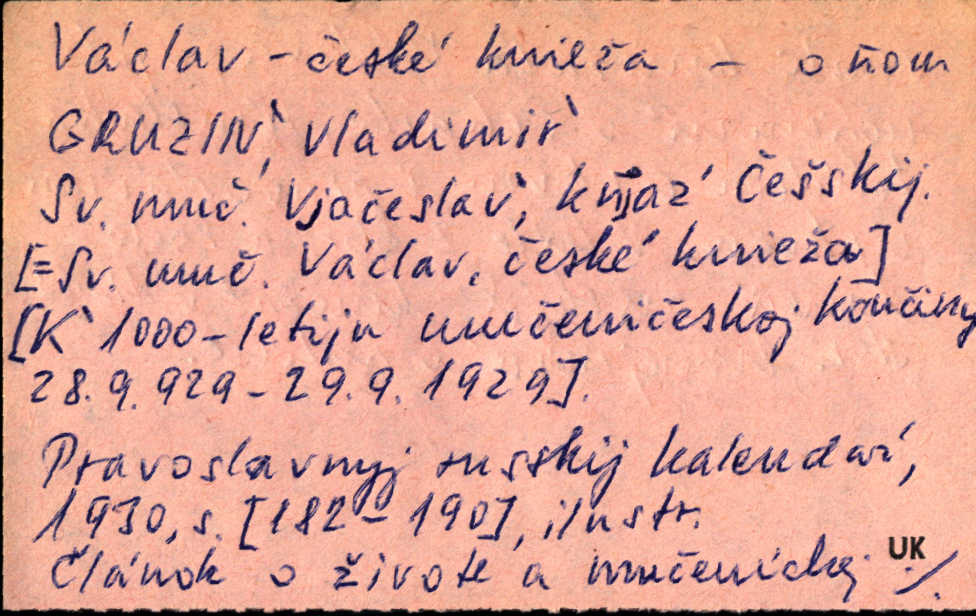 Václav - české knieža - o ňom
GRUZIN', Vladimir'
Sv. muč. Vjačeslav', kňjaz' Češskij.
[=Sv. muč. Václav, české knieža]
[K' 1000-letiju mučeničeskoj končiny
28.9.929-29.9.1929].
Pravoslavnyj russkij kalendař,
1930, s. [182-190], ilustr.
Článok o živote a mučeníckej ./.
UK